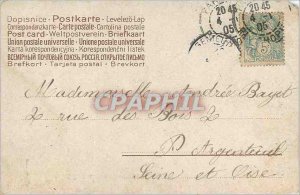 Dopisnice - Postkarte - Levelező-Lap
Correspondenzkarte - Carte postale - Cartolina postale
Post card - Weltpostverein - Briefkaart
Union postale universelle - Unione postale universale
Karta korespondencyjna - Korespondenční lístek
ВСЕМІРНЫЙ ПОЧТОВЫЙ СОЮЗЪ РОССІЯ. ОТКРЫТОЕ ПИСЬМО
Brefkort - Tarjeta postal - Brevkort
20 45
4 - 1
05
20 45
4 - 1
05
5
PRCARTE.COM
Mademoiselle Andrée Bayet
2 rue des Bois 2
Argenteuil
Seine et Oise